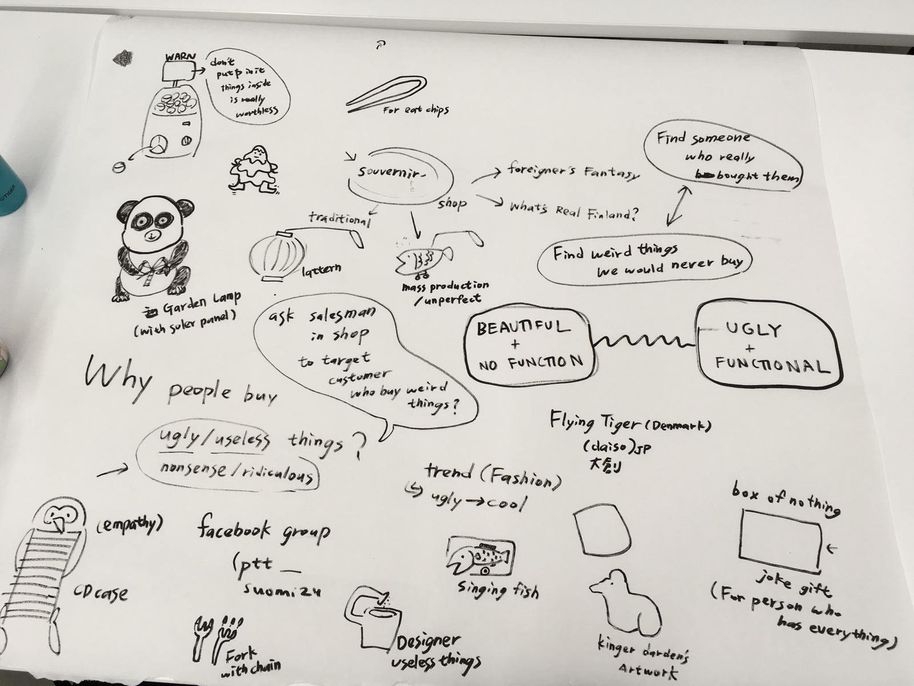 WARN
don't
put P in it
things inside
is really
worthless
For eat chips
Souvenir
shop
foreigner's Fantasy
what's Real Finland?
Find someone
who really
bought them
Find weird things
we would never buy
traditional
lattern
mass production
/unperfect
Garden Lamp
(with soler panel)
ask salesman
in shop
to target
custumer
who buy weird
things?
BEAUTIFUL
+
NO FUNCTION
UGLY
+
FUNCTIONAL
Why people buy
ugly/useless things?
nonsense/ridiculous
Flying Tiger (Denmark)
(daiso) JP
大創
trend (Fashion)
ugly → cool
box of nothing
joke gift
(For person who
has everything)
(empathy)
CD case
facebook group
(ptt
suomi24
Singing fish
Fork
with chain
Designer
useless things
kinger darden's
Artwork